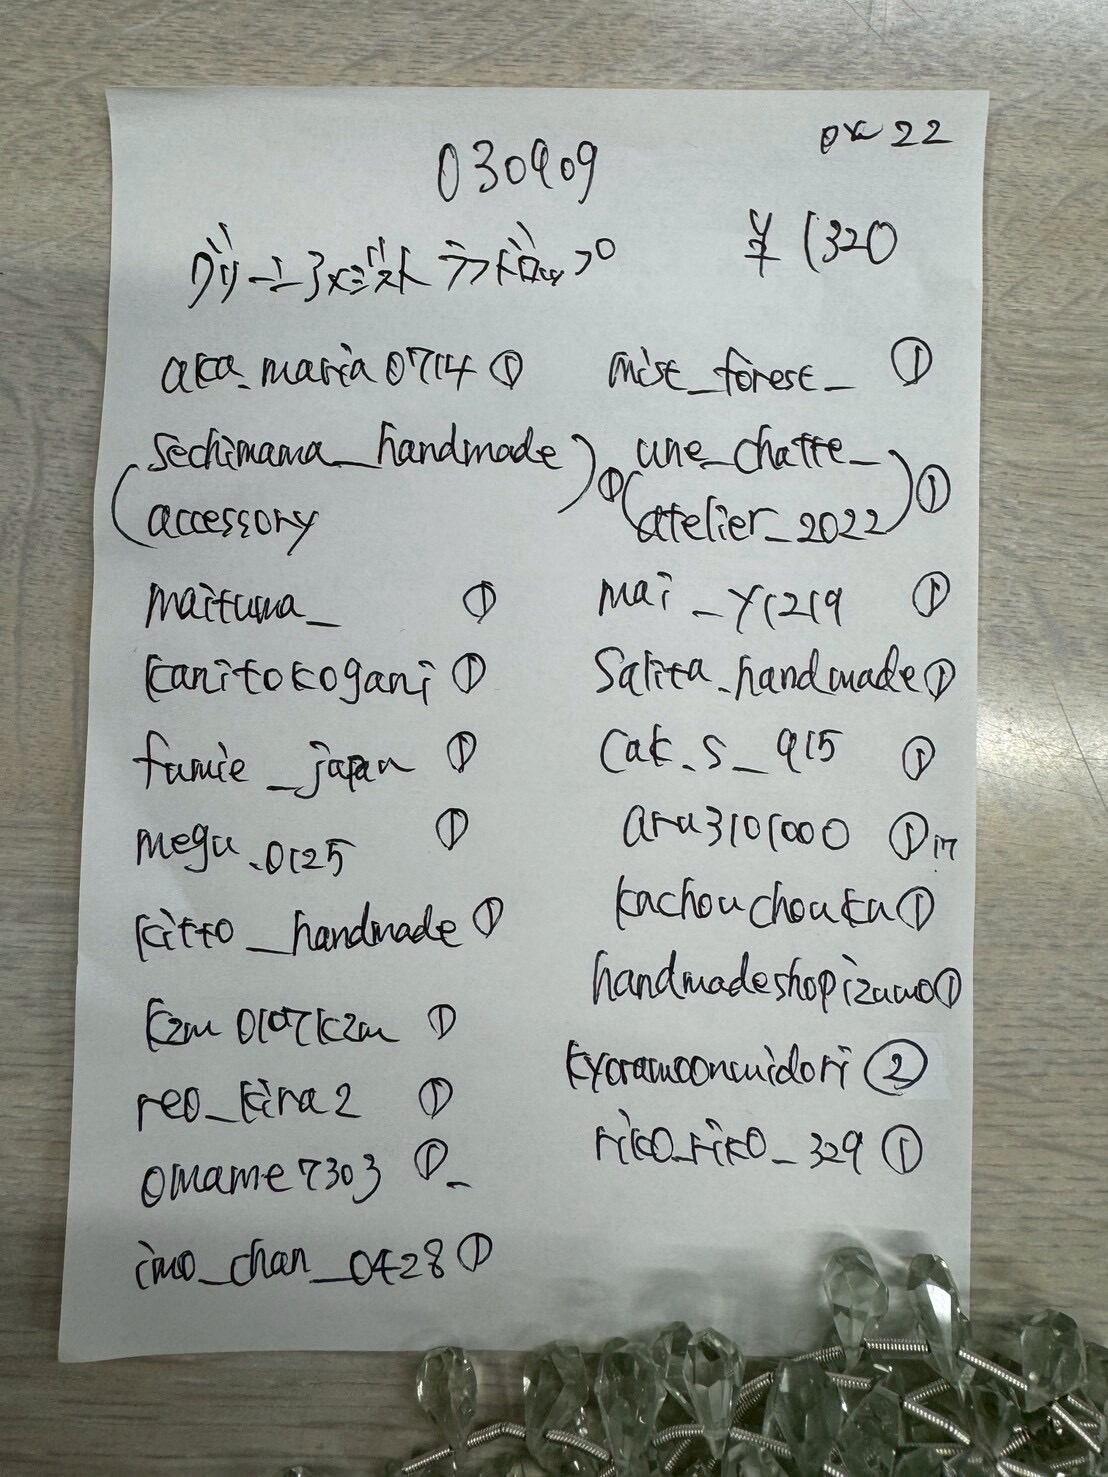 030909
22
グリーンアメジスト ラフドロップ
¥1320
aka_maria0714 ①
(sechimama_handmade
accessory) ①
maituma_ ①
kanitokogani ①
fumie_japan ①
megu.0125 ①
kitto_handmade ①
kzm0107kzm ①
reo_kira2 ①
omame7303 ①
imo_chan_0428 ①
mist_forest_ ①
(une_chatte_
atelier_2022) ①
mai_y1219 ①
salita.handmade ①
cak.s_915 ①
aru3101000 ①
kachouchouka ①
handmadeshopizumo ①
kyoramoonmidori ②
riko_riko_329 ①